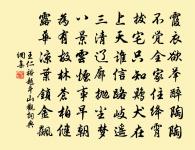 霞衣欲舉醉陶陶
不覺全家住絳霄
拔宅只知雞犬在
上天誰信路岐遙
三清遼廓拋塵夢
八景雲煙事早朝
為有故林蒼柏健
露華涼葉鎖金飆
王仁裕題斗山觀詞典
網集